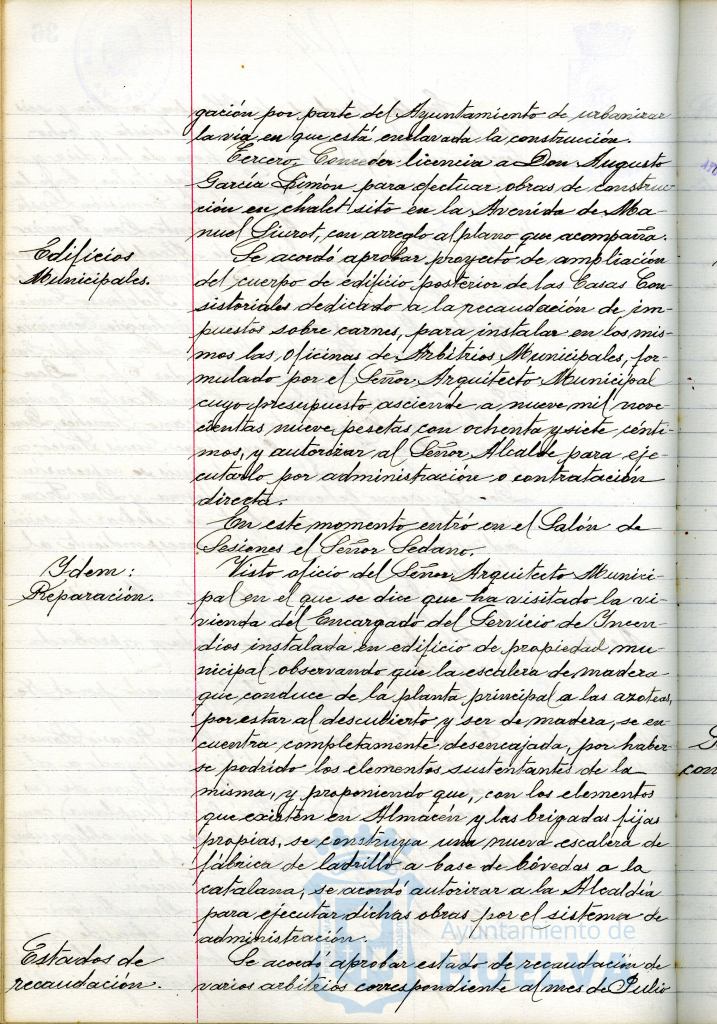 gación por parte del Ayuntamiento de urbanizar
la vía en que está enclavada la construcción.
Tercero, Conceder licencia a Don Augusto
García Limón para efectuar obras de construc-
ción en chalet sito en la Avenida de Ma-
nuel Siurot, con arreglo al plano que acompaña.
Edificios
Municipales.
Se acordó aprobar proyecto de ampliación
del cuerpo de edificio posterior de las Casas Con-
sistoriales dedicado a la recaudación de im-
puestos sobre carnes, para instalar en los mis-
mos las oficinas de Arbitrios Municipales, for-
mulado por el Señor Arquitecto Municipal
cuyo presupuesto asciende a nueve mil nove-
cientas nueve pesetas con ochenta y siete cénti-
mos, y autorizar al Señor Alcalde para eje-
cutarlo por administración o contratación
directa.
En este momento entró en el Salón de
Sesiones el Señor Sedano.
Ydem:
Reparación.
Visto oficio del Señor Arquitecto Munici-
pal en el que se dice que ha visitado la vi-
vienda del Encargado del Servicio de Incen-
dios instalada en edificio de propiedad mu-
nicipal observando que la escalera de madera
que conduce de la planta principal a las azoteas,
por estar al descubierto y ser de madera, se en-
cuentra completamente desencajada, por haber-
se podrido los elementos sustentantes de la
misma, y proponiendo que, con los elementos
que existen en Almacén y las brigadas fijas
propias, se construya una nueva escalera de
fábrica de ladrillo a base de bóvedas a la
catalana, se acordó autorizar a la Alcaldía
para ejecutar dichas obras por el sistema de
administración.
Estados de
recaudación.
Se acordó aprobar estado de recaudación de
varios arbitrios correspondiente al mes de Julio
Ayuntamiento de
HUELVA